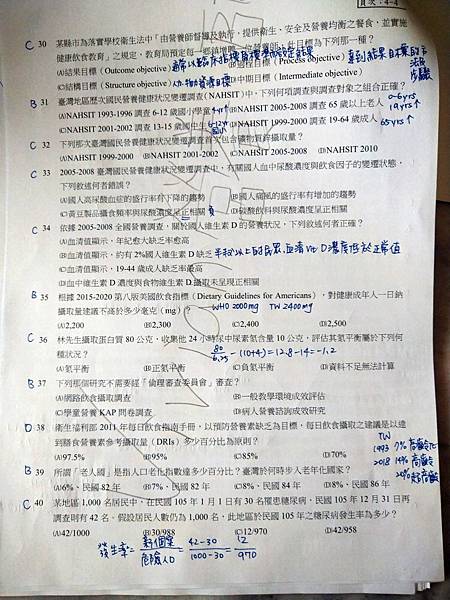 頁次：4-4
C 30 某縣市為落實學校衛生法中「由營養師督導及執行，提供衛生、安全及營養均衡之餐食，並實施
健康飲食教育」之規定，教育局預定每一鄉鎮
(A)結果目標（Outcome objective）
(B)過程目標（Process objective）
(C)結構目標（Structure objective）人力物
(D)中期目標（Intermediate objective）
B 31 臺灣地區歷次國民營養健康狀況變遷調查(NAHSIT)中，下列何項調查與調查對象之組合正確？
(A)NAHSIT 1993-1996 調查 6-12 歲國小學童 4yr↑ (B)NAHSIT 2005-2008 調查 65 歲以上老人
(C)NAHSIT 2001-2002 調查 13-15 歲國中生 (D)NAHSIT 1999-2000 調查 19-64 歲成人
0-6yrs
19yrs↑
65yrs↑
C 32 下列那次臺灣國民營養健康狀況變遷調查首次包含礦物質鋅攝取量？
(A)NAHSIT 1999-2000 (B)NAHSIT 2001-2002 (C)NAHSIT 2005-2008 (D)NAHSIT 2010
C 33 2005-2008 臺灣國民營養健康狀況變遷調查中，有關國人血中尿酸濃度與飲食因子的變遷狀態，
下列敘述何者錯誤？
(A)國人高尿酸血症的盛行率有下降的趨勢 (B)國人痛風的盛行率有增加的趨勢
(C)黃豆製品攝食頻率與尿酸濃度呈正相關 負 (D)碳酸飲料與尿酸濃度呈正相關
C 34 依據 2005-2008 全國營養調查，關於國人維生素 D 的營養狀況，下列敘述何者正確？
(A)血清值顯示，年紀愈大缺乏率愈高
(B)血清值顯示，約有 2%國人維生素 D 缺乏 半數以上的民眾血清 vit D 濃度低於正常值
(C)血清值顯示，19-44 歲成人缺乏率最高
(D)血中維生素 D 濃度與食物維生素 D 攝取未呈現正相關
B 35 根據 2015-2020 第八版美國飲食指標（Dietary Guidelines for Americans），對健康成年人一日鈉
攝取量建議不高於多少毫克（mg）？ WHO 2000mg TW 2400mg
(A)2,200 (B)2,300 (C)2,400 (D)2,500
C 36 林先生攝取蛋白質 80 公克，收集他 24 小時尿中尿素氮含量 10 公克，評估其氮平衡屬於下列何
種狀況？ 80/6.25 -(10+4)=12.8-14=-1.2
(A)氮平衡 (B)正氮平衡 (C)負氮平衡 (D)資料不足無法計算
B 37 下列那個研究不需要經「倫理審查委員會」審查？
(A)網路飲食攝取調查 (B)一般教學環境成效評估
(C)學童營養 KAP 問卷調查 (D)病人營養諮詢成效研究
D 38 衛生福利部 2011 年每日飲食指南手冊，以預防營養素缺乏為目標，每日飲食攝取之建議是以達
到膳食營養素參考攝取量（DRIs）多少百分比為原則？
(A)97.5% (B)95% (C)85% (D)70%
TW
1993 7% 高齡化
2018 14% 高齡
20% 超高齡
B 39 所謂「老人國」是指人口老化指數達多少百分比？臺灣於何時步入老年化國家？
(A)6%、民國 82 年 (B)7%、民國 82 年 (C)8%、民國 84 年 (D)8%、民國 86 年
C 40 某地區 1,000 名居民中，在民國 105 年 1 月 1 日有 30 名罹患糖尿病，民國 105 年 12 月 31 日再
調查則有 42 名。假設居民人數仍為 1,000 名，此地區於民國 105 年之糖尿病發生率為多少？
(A)42/1000 (B)30/988 (C)12/970 (D)42/958
發生率=新個案/危險人口=42-30/1000-30=12/970